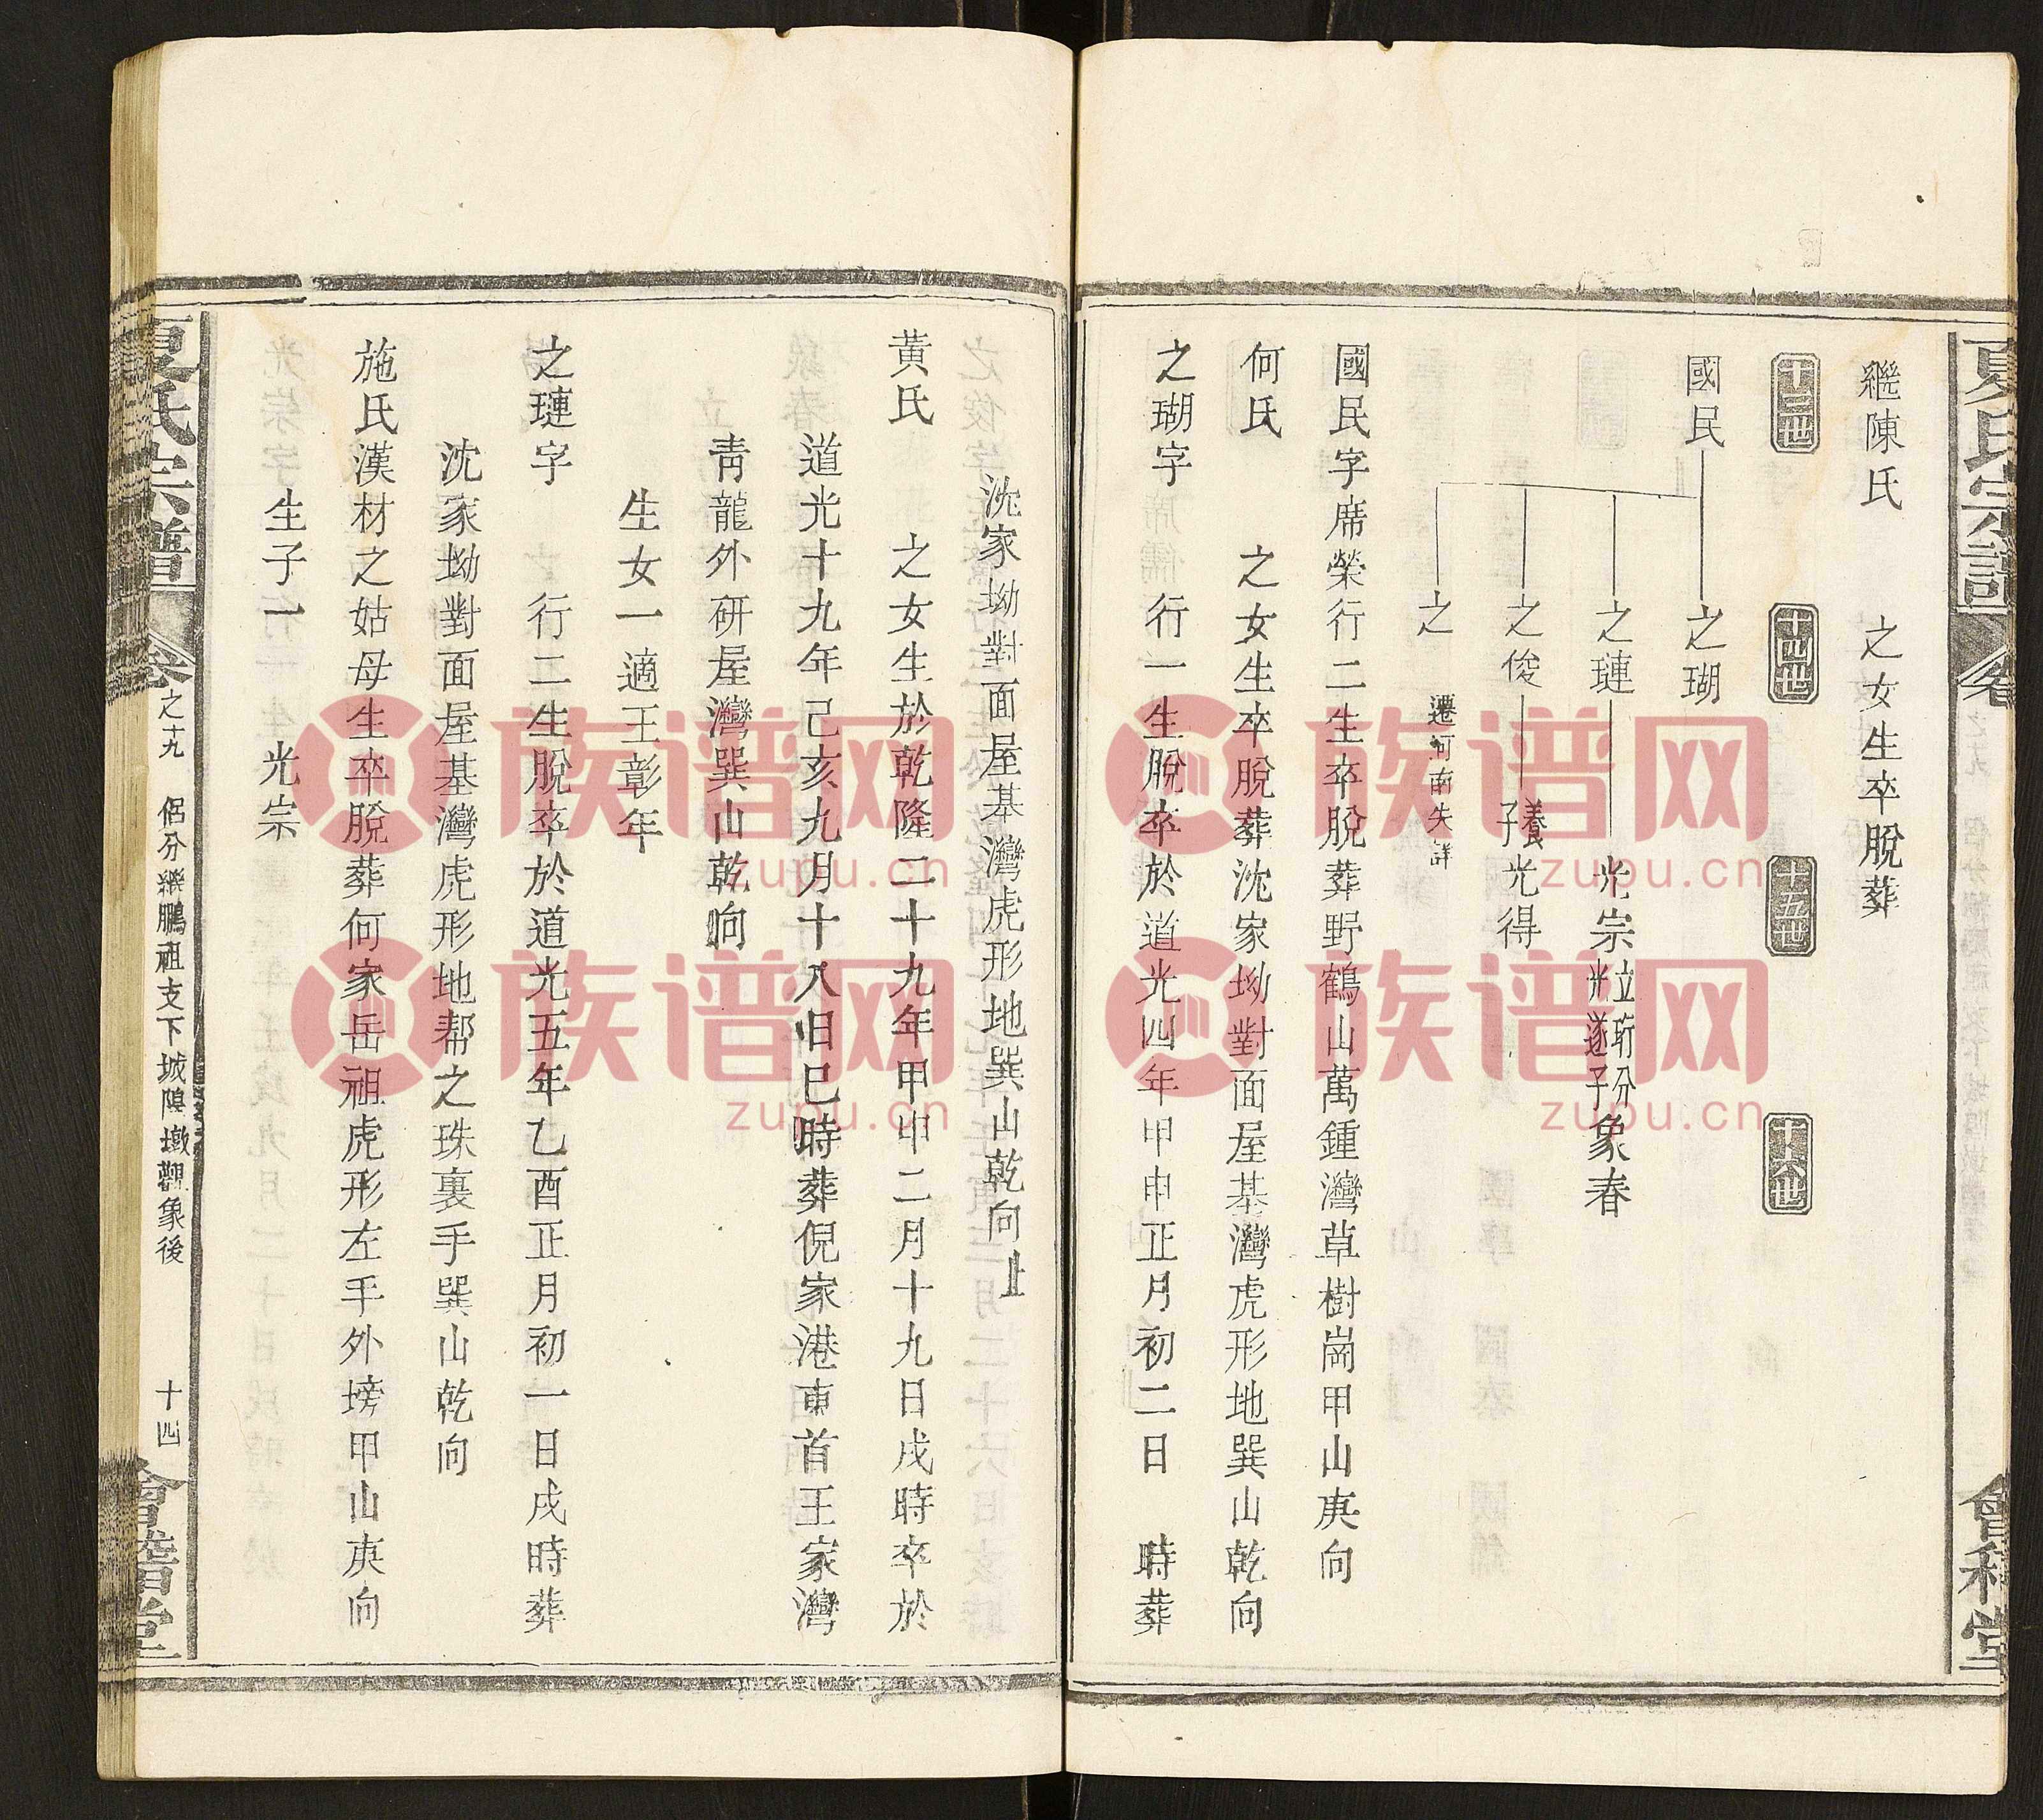 夏氏宗譜
卷
會稽堂
繼陳氏 之女生卒脫葬
十三世 十四世 十五世 十六世
國民 之瑚
之璉 光宗 立珩分光遂子 象春
之俊 養子 光得
之 遷河南失詳
國民字席榮行二生卒脫葬野鶴山萬鍾灣草樹崗甲山庚向
何氏 之女生卒脫葬沈家坳對面屋基灣虎形地巽山乾向
之瑚字 行一生脫卒於道光四年甲申正月初二日 時葬
沈家坳對面屋基灣虎形地巽山乾向
黃氏 之女生於乾隆二十九年甲申二月十九日戌時卒於
道光十九年己亥九月十八日巳時葬倪家港東首王家灣
靑龍外研屋灣巽山乾向
生女一適王彰年
之璉字 行二生脫卒於道光五年乙酉正月初一日戌時葬
沈家坳對面屋基灣虎形地帮之珠裏手巽山乾向
施氏漢材之姑母生卒脫葬何家岳祖虎形左手外塝甲山庚向
生子一 光宗
夏氏宗譜
卷之十九 侶分繼鵬祖支下城隍墩觀象後 十四
會稽堂
族谱网
zupu.cn
族谱网
zupu.cn
族谱网
zupu.cn
族谱网
zupu.cn